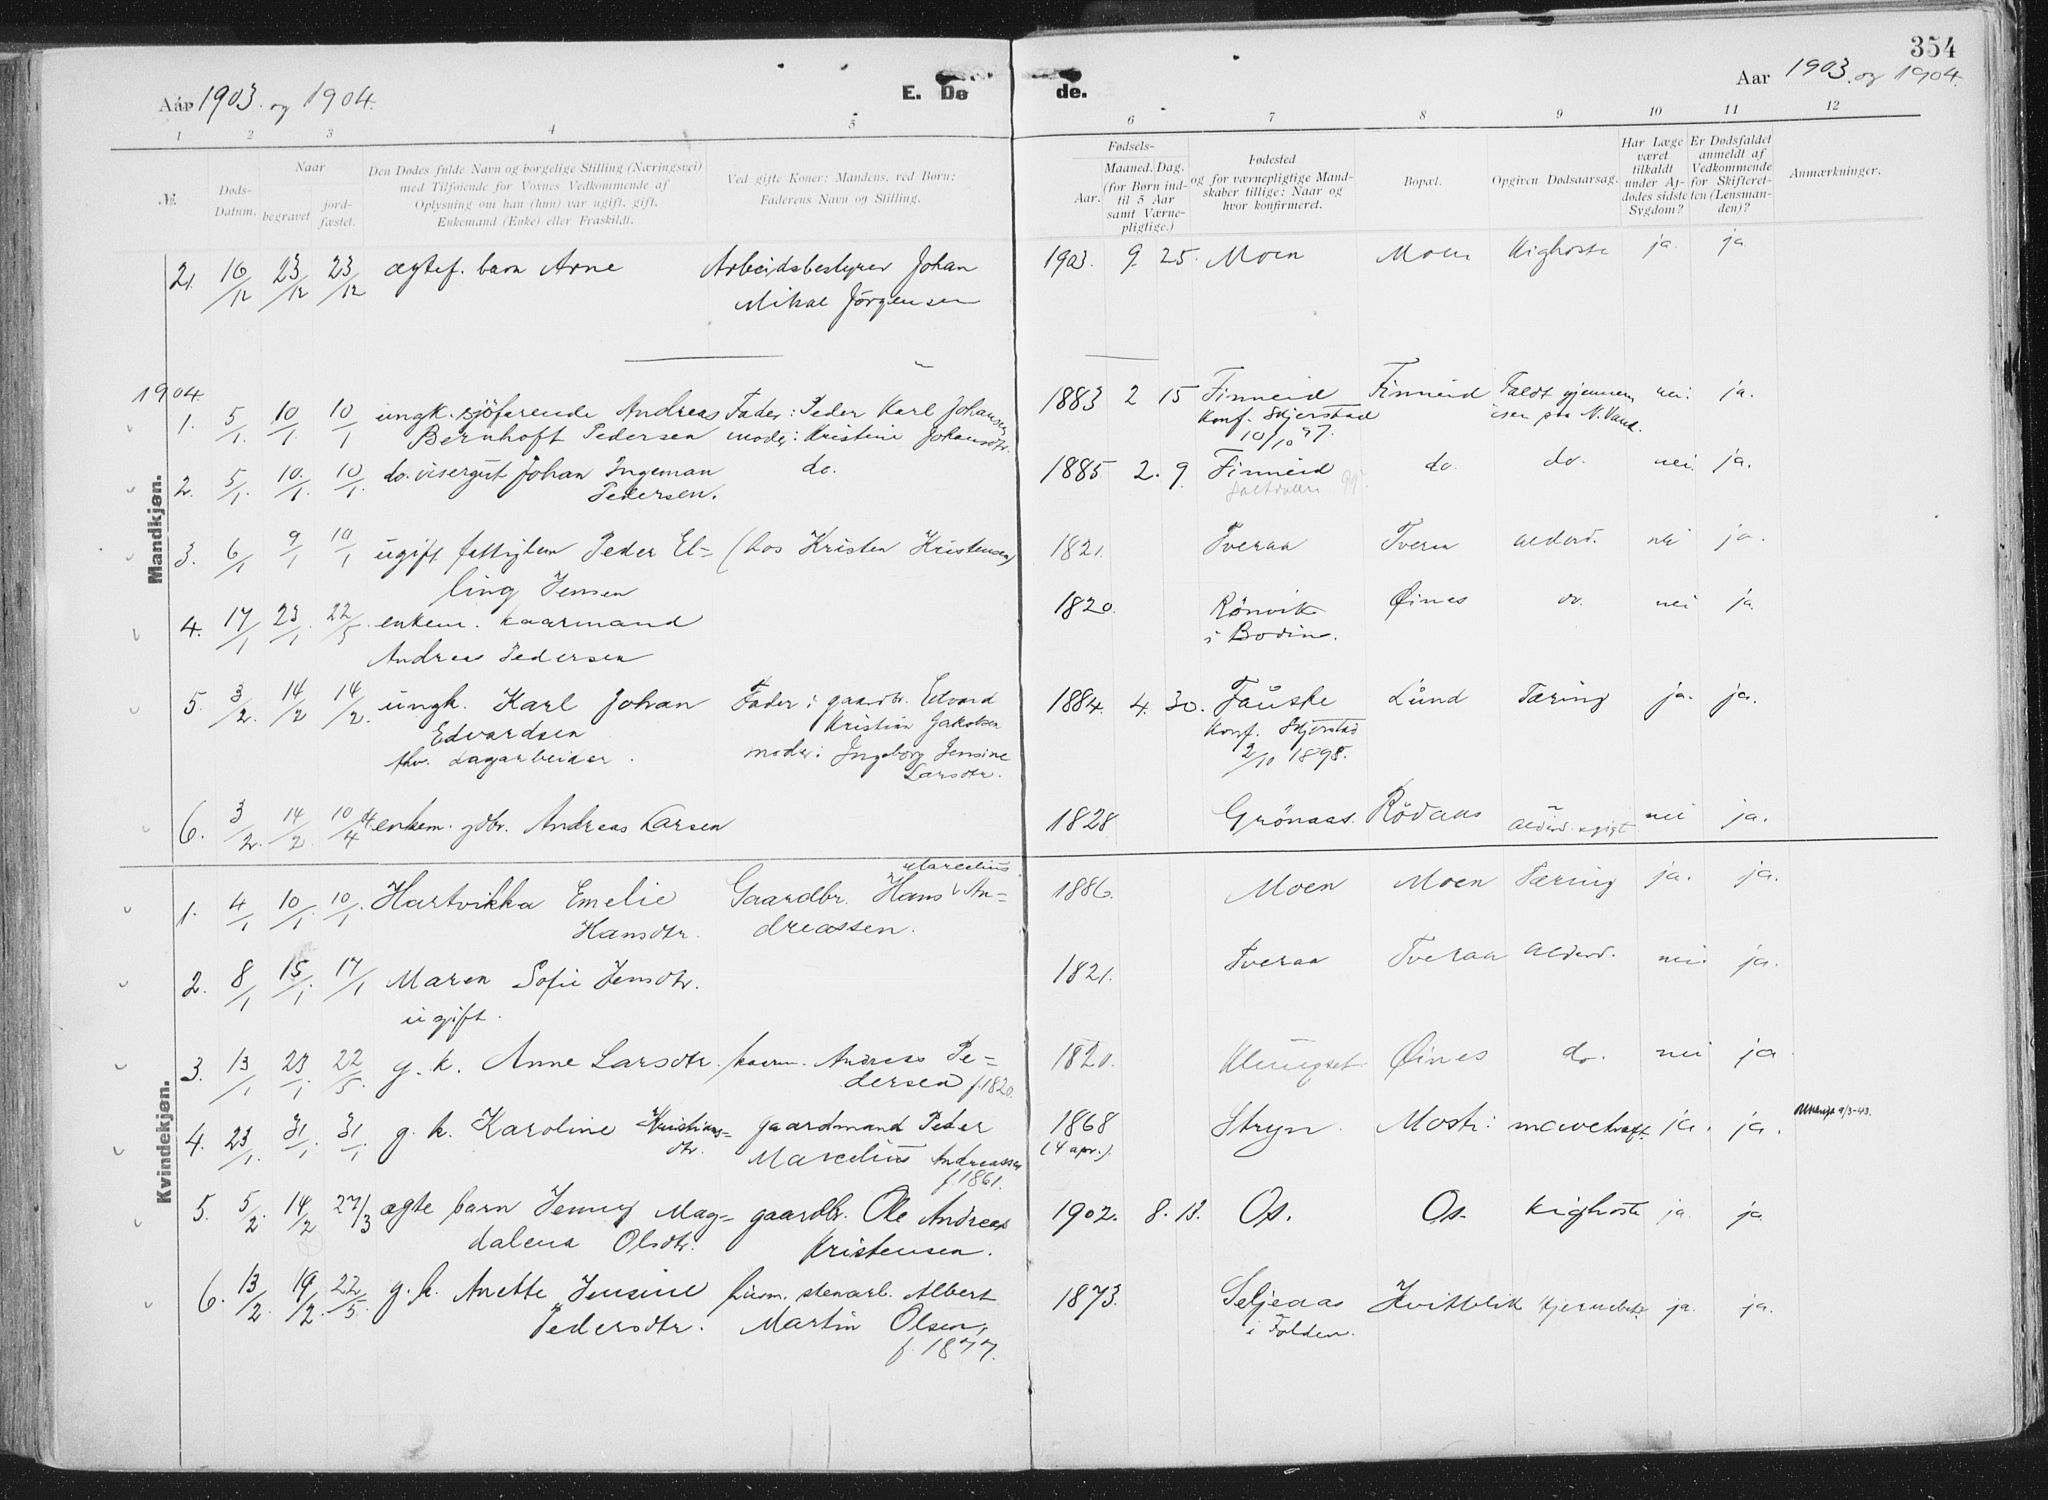 354
Aar 1903 og 1904.
E. Dø
de.
Aar 1903 og 1904.
1 2 3 4 5 6 7 8 9 10 11 12
№.
Døds-Datum.
Naar
begravet
jord-fæstet.
Den Dødes fulde Navn og borgelige Stilling (Næringsvei)
med Tilføiende for Voxnes Vedkommende af
Oplysning om han (hun) var ugift, gift,
Enkemand (Enke) eller Fraskildt.
Ved gifte Koner: Mandens, ved Børn:
Faderens Navn og Stilling.
Fødsels-
Aar.
Maaned. Dag.
(for Børn ind-
til 5 Aar
samt Værne-
pligtige.)
Fødested
og for værnepligtige Mand-
skaber tillige: Naar og
hvor konfirmeret.
Bopæl.
Opgiven Dødsaarsag.
Har Læge
været
tilkaldt
under Af-
dødes sidste
Sygdom?
Er Dødsfaldet
anmeldt af
Vedkommende
for Skifteret-
ten (Lensman-
den)?
Anmærkninger.
Mandkjøn.
21. 16/12 23/12 23/12 ægtef. barn Arne Arbeidsbestyrer Johan 1903. 9. 25. Moen Moen Kighoste ja. ja.
Mikal Jørgensen
1904.
1. 5/1. 10/1. 10/1 ungk. sjøfarende Andreas Fader: Peder Karl Johansen 1883 2 15 Finneid Finneid Faldt gjennem nei. ja.
Bernhoft Pedersen moder: Kristine Johansdtr. Konf. Skjerstad isen paa N. Vand.
10/10 97.
2. 5/1. 10/1. 10/1. do. visergut Johan Ingeman do. 1885 2. 9. Finneid do. do. nei. ja.
Pedersen.
3. 6/1 9/1 10/1 ugift fattiglem Peder El= (hos Kristen Kristensen) 1821. Tveraa Tveraa alderd. nei ja.
ling Jensen
4. 17/1 23/1. 22/5. enkem. kaarmand 1820. Rönvik Øines do. nei ja.
Andreas Pedersen i Bodin.
5. 3/2. 14/2 14/2. ungk. Karl Johan Fader: gaardbr. Edvard 1884. 4. 30. Fauske Lund Tæring ja. ja.
Edvardsen Kristian Jakobsen Konf. Skjerstad
fhv. dagarbeider. moder: Ingeborg Jensine 2/10 1898.
Larsdtr.
6. 3/2. 14/2. 10/4 enkem. gdbr. Andreas Larsen 1828 Grönaas. Rödaas alderd. nei ja.
Kvindekjøn.
1. 4/1 10/1. 10/1. Hartvikka Emelie Gaardbr. Hans Marcelius An= 1886. Moen Moen Tæring ja. ja.
Hansdtr. dreassen.
2. 8/1 15/1. 17/1 Maren Sofie Jensdtr. 1821. Tveraa Tveraa Alderd. nei ja.
ugift.
3. 13/1 23/1. 22/5. g. k. Anne Larsdtr. kaarm. Andreas Pe= 1820. Klungset Øines do. nei ja
dersen f. 1820.
4. 23/1. 31/1. 31/1 g. k. Karoline Kristians= gaardmand Peder 1868 Stryn. Mostr: mavekræft ja. ja.
dtr. Marcelius Andreassen (4 apr.).
f. 1861.
5. 5/2. 14/2 27/3 ægte barn Jenny Mag= gaardbr. Ole Andreas 1902. 8. 13. Os. Os. Kighoste ja. ja.
dalena Olsdtr. Kristensen.
6. 13/2. 19/2. 22/5. g. k. Anette Jensine Linm. stenarb. Albert 1873. Seljeaas Hvitblik Hjernebet. ja. ja.
Pedersdtr. Martin Olsen, i Folden.
f. 1877.